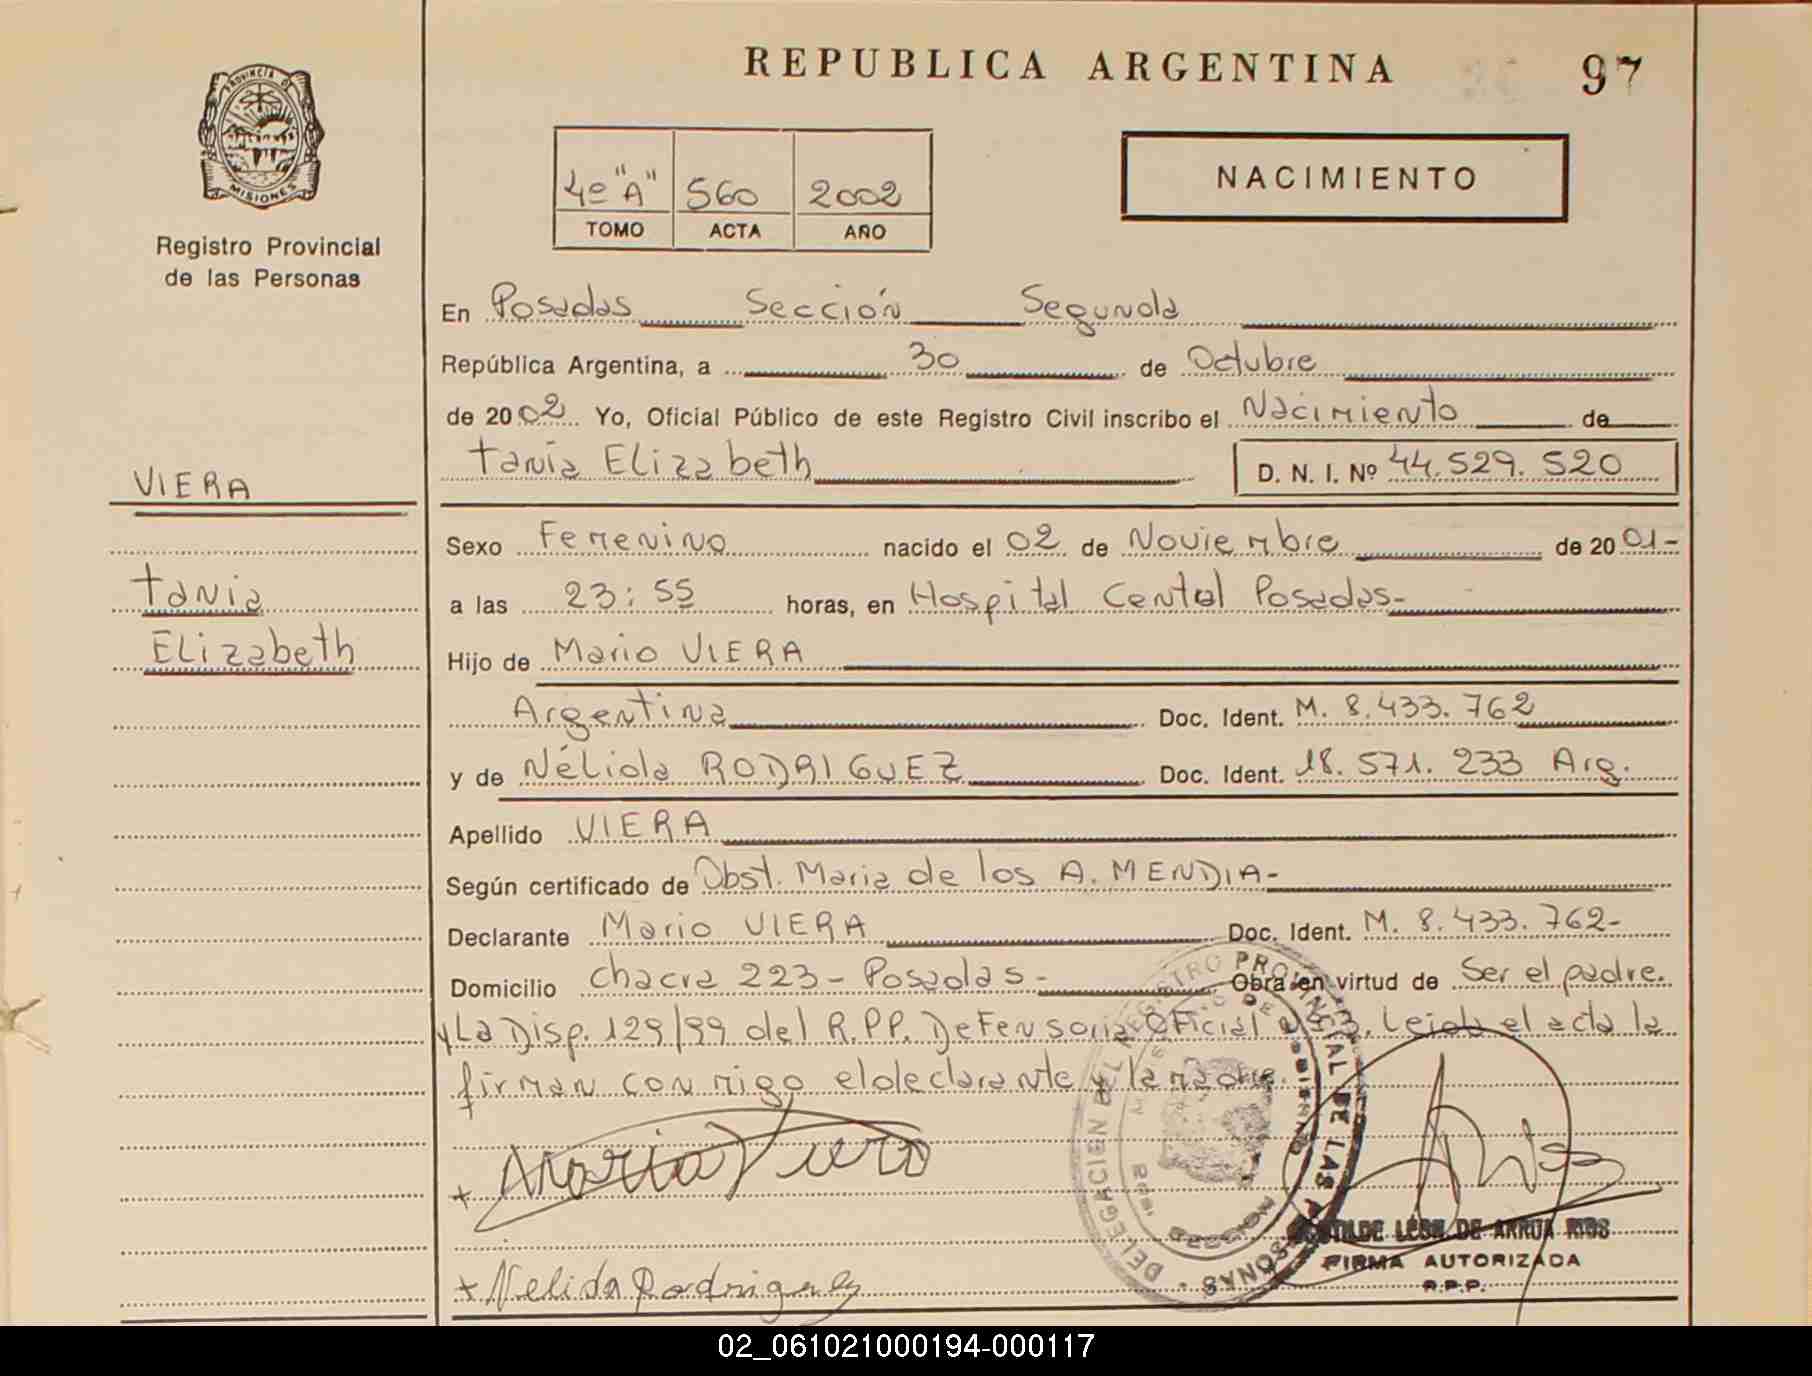 REPUBLICA ARGENTINA 97
PROVINCIA DE
MISIONES
Registro Provincial
de las Personas
4º "A" 560 2002
TOMO ACTA AÑO
NACIMIENTO
En Posadas Sección Segunda
República Argentina, a 30 de Octubre
de 2002 Yo, Oficial Público de este Registro Civil inscribo el Nacimiento de
Tania Elizabeth D. N. I. Nº 44.529.520
VIERA
Tania
Elizabeth
Sexo Femenino nacido el 02 de Noviembre de 2001-
a las 23:55 horas, en Hospital Central Posadas-
Hijo de Mario VIERA
Argentina Doc. Ident. M. 8.433.762
y de Nélida RODRIGUEZ Doc. Ident. 18.571.233 Arg.
Apellido VIERA
Según certificado de Obst. Maria de los A. MENDIA-
Declarante Mario VIERA Doc. Ident. M. 8.433.762-
Domicilio chacra 223 - Posadas - Obra en virtud de Ser el padre.
y La Disp. 129/99 del R.P.P. Defensoria Oficial Leida el acta la
firman conmigo el declarante y la madre.
DELEGACION DEL REGISTRO PROVINCIAL DE LAS PERSONAS
x Mario Viera
LEON DE ARRUA RIOS
FIRMA AUTORIZADA
R.P.P.
x Nelida Rodriguez
02_061021000194-000117